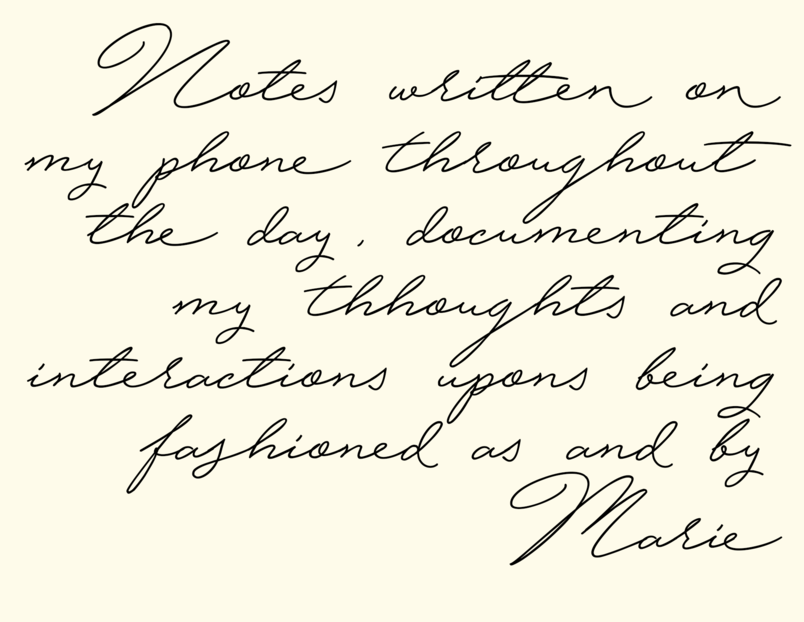 Notes written on
my phone throughout
the day, documenting
my thhoughts and
interactions upons being
fashioned as and by
Marie